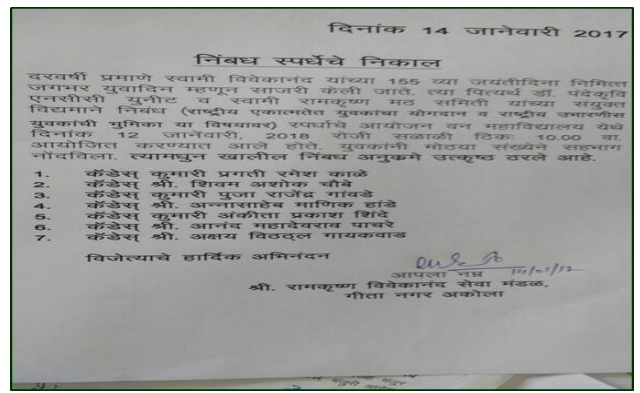 दिनांक 14 जानेवारी 2017
निंबध स्पर्धेचे निकाल
दरवर्षी प्रमाणे स्वामी विवेकानंद यांच्या 155 व्या जयंतीदिना निमित्त
जगभर युवादिन म्हणून साजरी केली जाते. त्या पित्यर्थ डॉ. पंदेकृवि
एनसीसी युनीट व स्वामी रामकृष्ण मठ समिती यांच्या संयुक्त
विद्यमाने निबंध (राष्ट्रीय एकात्मतेत युवकांचा योगदान व राष्ट्रीय उभारणीस
युवकांची भुमिका या विषयावर) स्पर्धाचे आयोजन वन महाविद्यालय येथे
दिनांक 12 जानेंवारी, 2018 रोजी सळाळी ठिक: 10.00 वा.
आयोजित करण्यात आले होते. युवकांनी मोठया संख्येने सहभाग
नोंदविला. त्यामधुन खालील निंबध अनुकमे उत्कृष्ठ ठरले आहे.
1. कॅडेस् कुमारी प्रगती रमेश काळे
2. कॅडेस् श्री. शिवम अशोक चौबे
3. कॅडेस् कुमारी पुजा राजेंद्र गांवडे
4. कॅडेस् श्री. अन्नासाहेब माणिक हांडे
5. कॅडेस् कुमारी अंकीता प्रकाश शिंदे
6. कॅडेस् श्री. आनंद महादेवराव पाचरे
7. कॅडेस् श्री. अक्षय विठद्ल गायकवाड
विजेत्याचे हार्दिक अभिनंदन
आपला नम्र
श्री. रामकृष्ण विवेकानंद सेवा मंडळ,
गीता नगर अकोला